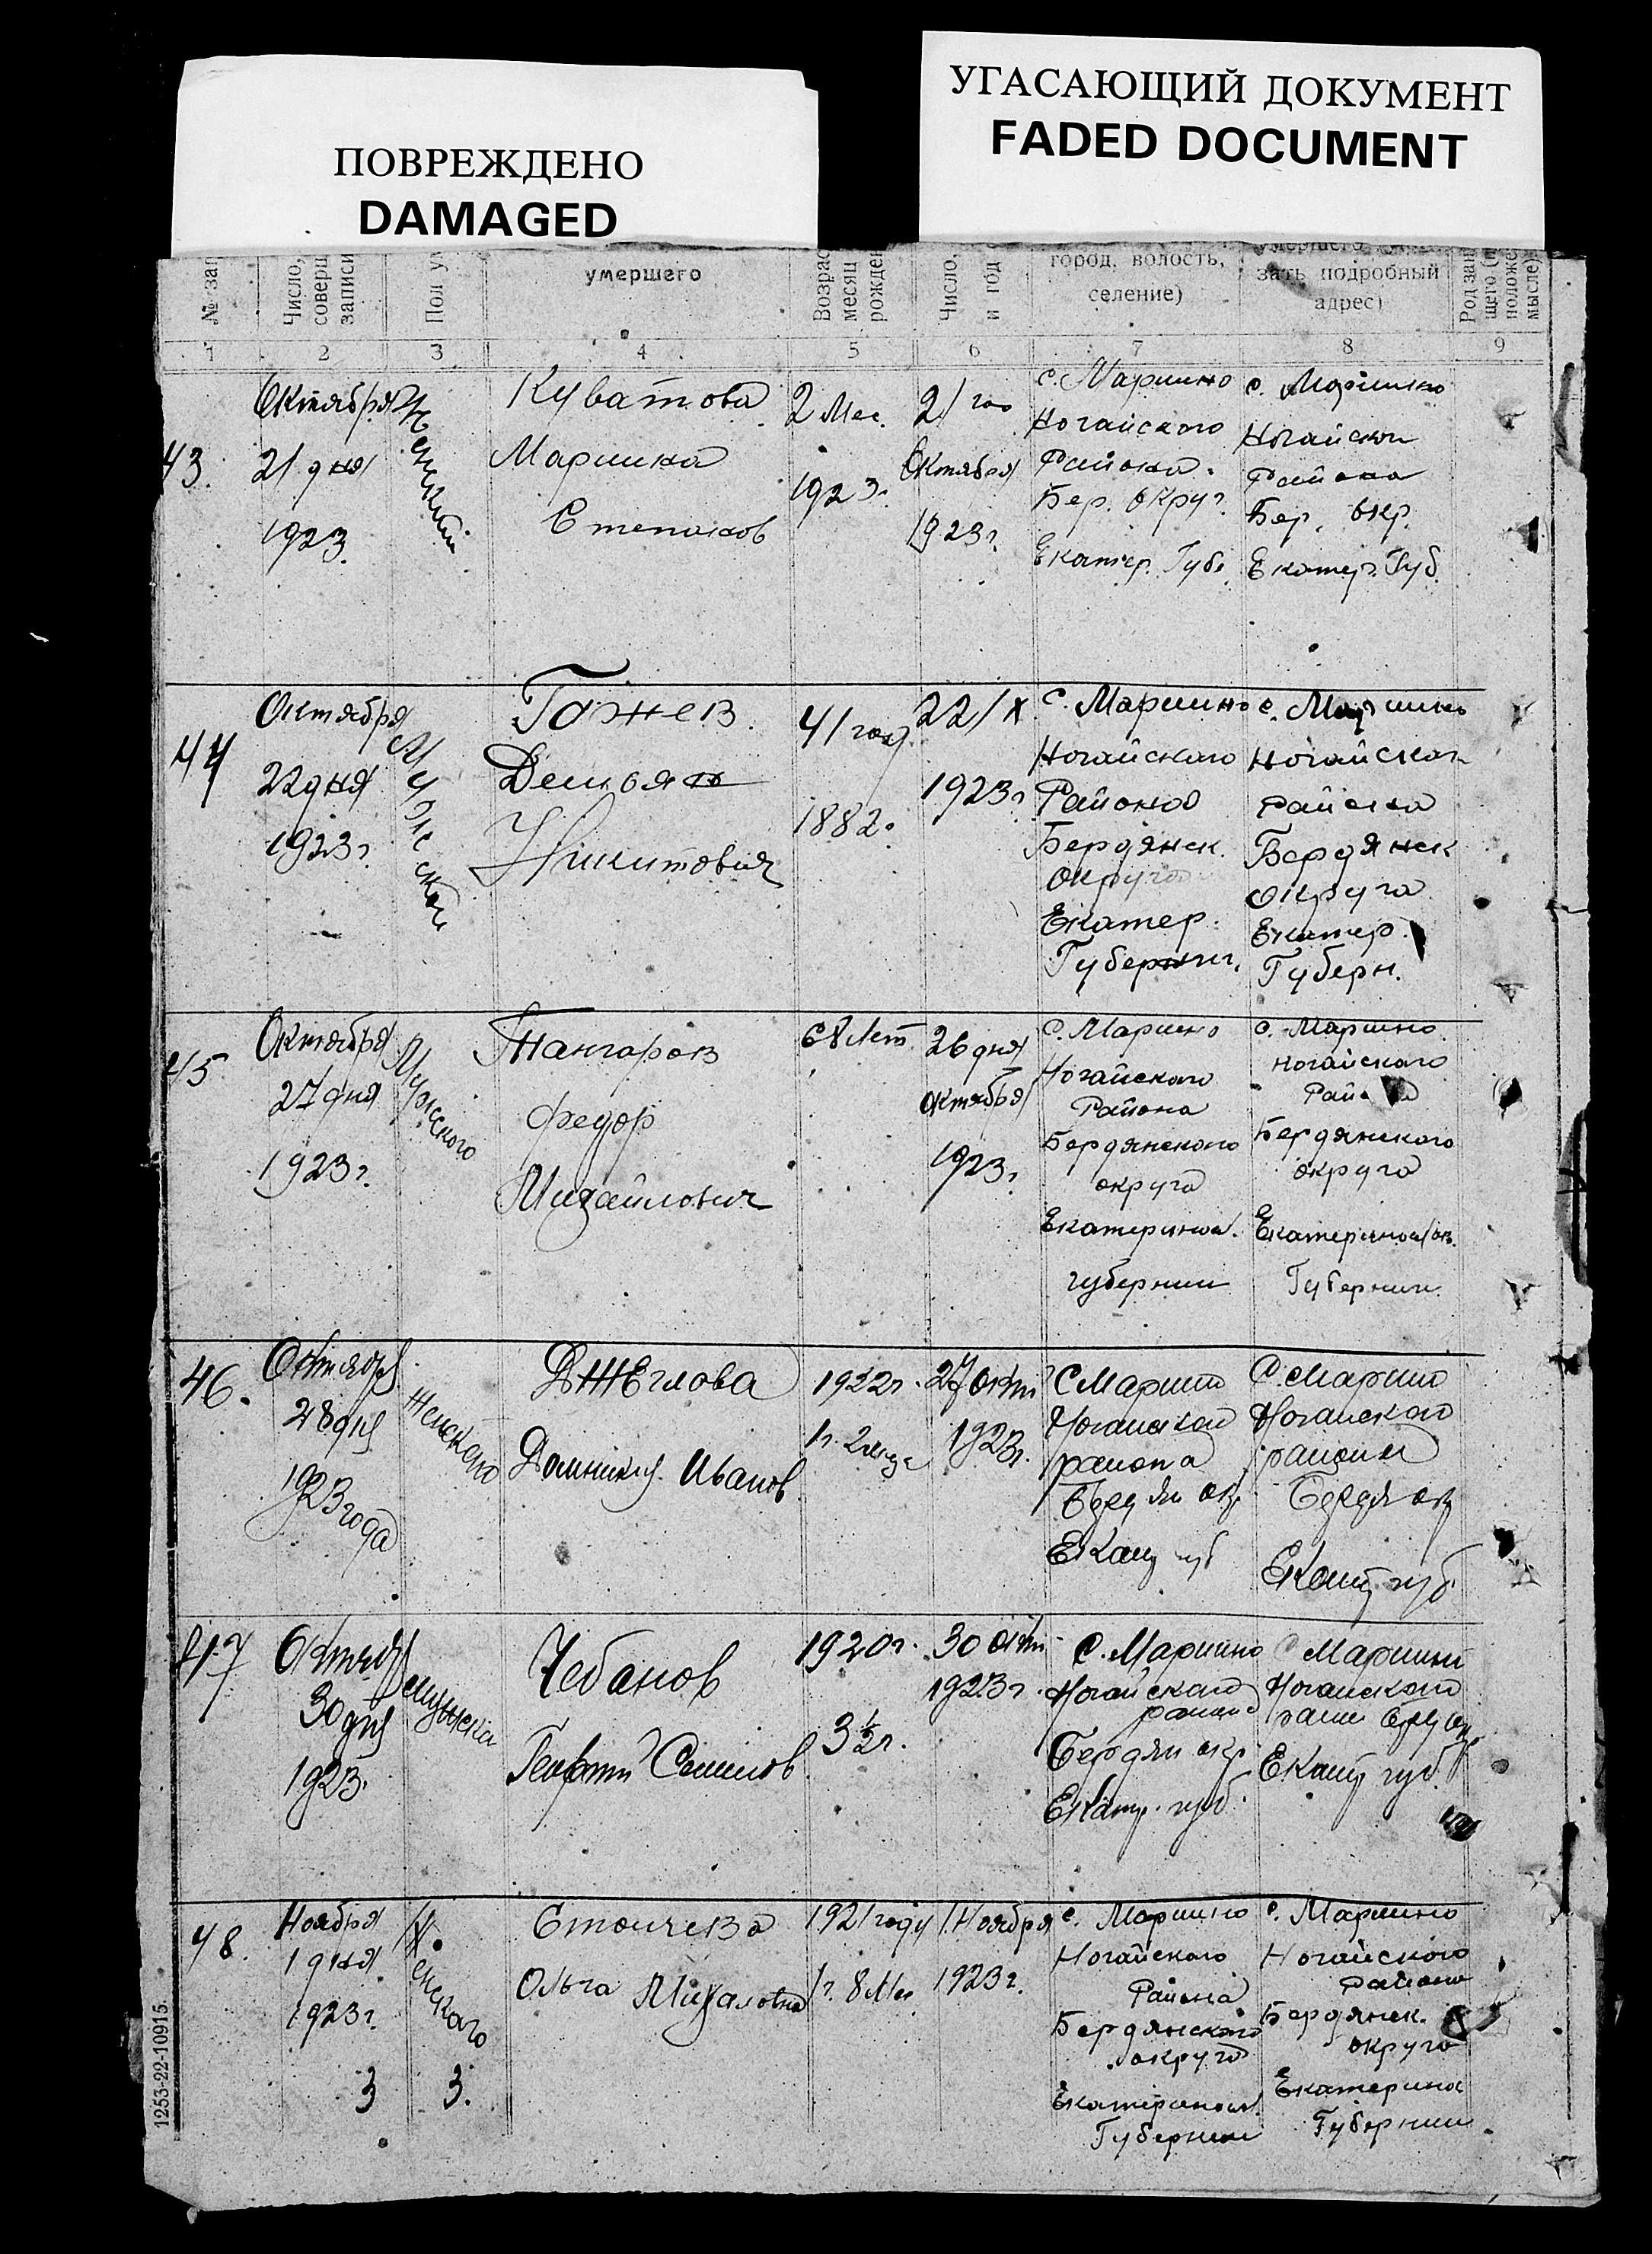 ПОВРЕЖДЕНО
DAMAGED
УГАСАЮЩИЙ ДОКУМЕНТ
FADED DOCUMENT
№ за
Число,
соверш
записи
Пол у
умершего
Возрас
месяц
рожде
Число,
и год
город, волость,
селение)
умершего
зать подробный
адрес)
Род за
щего (
положе
мысле)
1 2 3 4 5 6 7 8 9
43.
Октября
21 дня
1923
Женский
Куватова
Маринка
Степанов
2 Мес.
1923.
21 го
Октября
1923г.
с. Марино
Ногайского
Района.
Бер. Округ.
Екатер. Губ.
с. Марино
Ногайског
Района
Бер. Окр.
Екатер. Губ.
44
Октября
22 дня
1923г.
Мужской
Гажев.
Демьян
Никитович
41 год
1882.
22/X
1923г.
с. Марино
Ногайского
Района
Бердянск.
Округа
Екатер.
Губернии.
с. Марино
Ногайског
Района
Бердянск
Округа
Екатер.
Губерн.
45
Октября
27 дня
1923г.
Мужского
Тангаров
Федор
Михайлович
68 лет
26 дня
Октября
1923г.
с. Марино
Ногайского
Района
Бердянского
округа
Екатеринос.
губернии
с. Марино
Ногайского
Бердянского
округа
Губернии
46.
Октября
28 дня
1923 года
Женского
Джеглова
Иванов
1922г.
1г. 2
27 окт
1923г.
С Марино
Ногайского
района
Бердян ок
Екат губ
С. Марино
Ногайского
района
Бердя ок
Екат губ.
47
Октяб
30 дня
1923.
Мужска
Чебанов
1920г.
3½г.
30 окт
1923г.
С. Марино
Ногайского
района
Бердян окр
Екатр. губ.
С Марини
Ногайского
Екат губ.
48.
Ноября
1 дня
1923г.
Женского
Стоичева
Ольга Михаловна
1921 году
1г. 8 Ме
1 Ноября
1923г.
с. Марино
Ногайского
Района
Бердянского
округа
Екатеринос.
Губернии
с. Марино
Ногайского
Района
Бердянск.
округа
Екатерино
Губернии
3 3.
1253-22-10915.